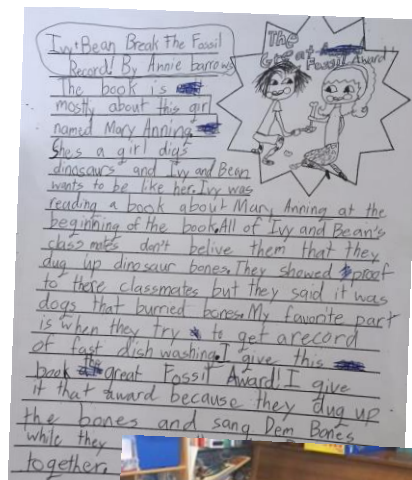 Ivy + Bean Break the Fossil
Record! By Annie barrows
The
Great
Fossil Award
The book is
mostly about this girl
named Mary Anning
Shes a girl digs
dinosaurs and Ivy and Bean
wants to be like her. Ivy was
reading a book about Mary Anning at the
beginning of the book. All of Ivy and Bean's
class mates don't belive them that they
dug up dinosaur bones. They showed proof
to there classmates but they said it was
dogs that burried bones. My favorite part
is when they try to get a record
of fast dish washing. I give this
book the great Fossil Award! I give
it that award because they dug up
the bones and sang Dem Bones
while they
together.